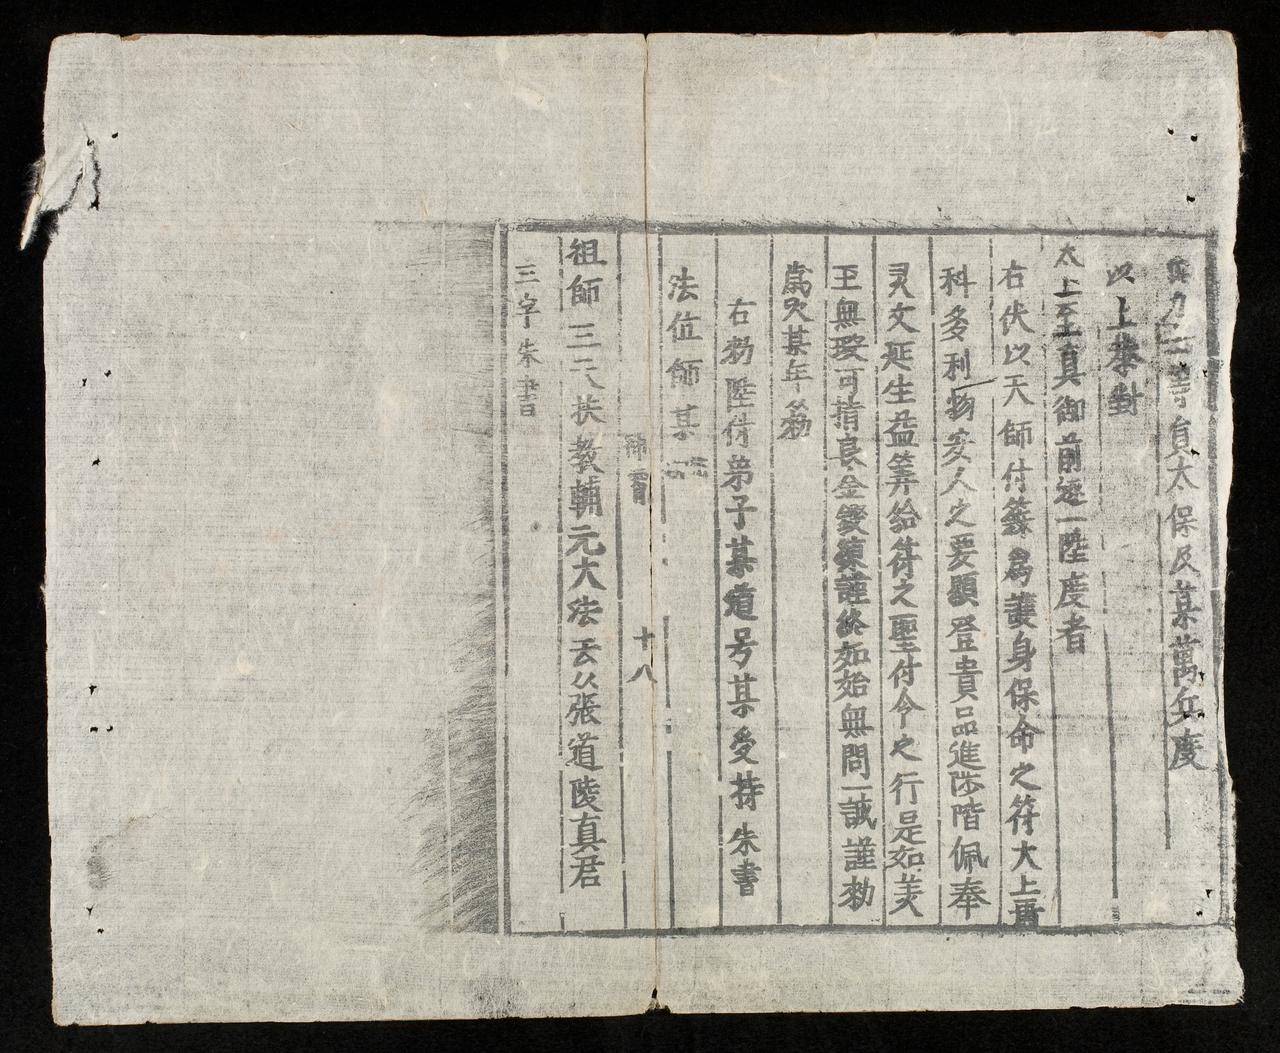 等負太保及某萬兵度
以上拳對
太上至真御前逐一陞度者
右伏以天師付籙為護身保命之符太上再
科多利物安人之要顕登貴品進陟階佩奉
灵文延生益筭給符之聖付令之行是如美
至無瑕可指良金鍛鍊謹終如始無問一誠謹勑
為只某年勑
右勑陞付弟子某道号某受持朱書
法位師某
十八
祖師三天扶教輔元大法云々張道陵真君
三字朱書